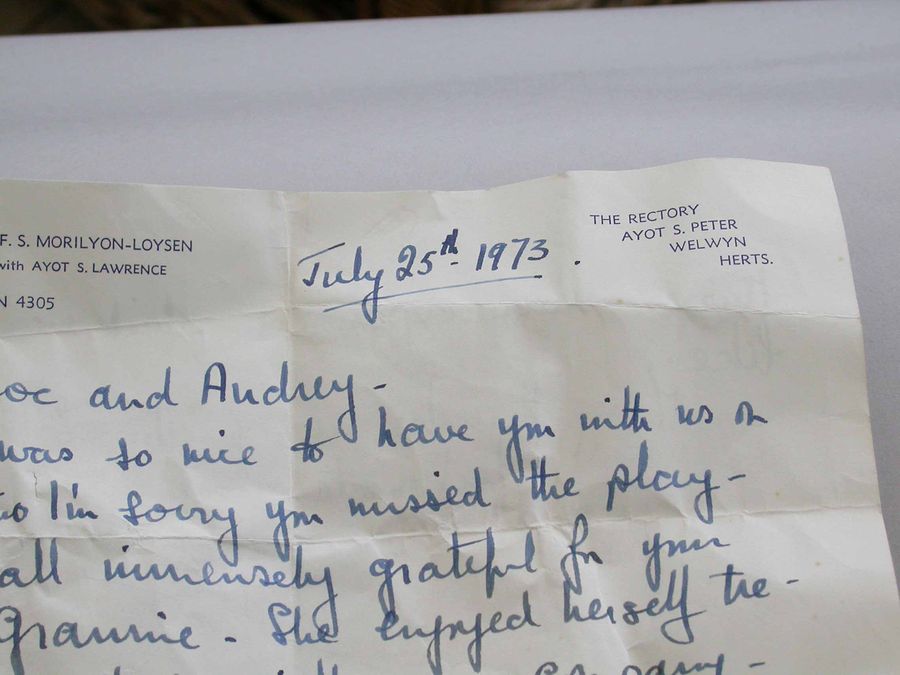 F. S. MORILYON-LOYSEN
with AYOT S. LAWRENCE
N 4305
July 25th 1973.
THE RECTORY
AYOT S. PETER
WELWYN
HERTS.
oc and Audrey -
was so nice to have you with us on
to I'm sorry you missed the play -
all immensely grateful for your
Grannie. She enjoyed herself tre-